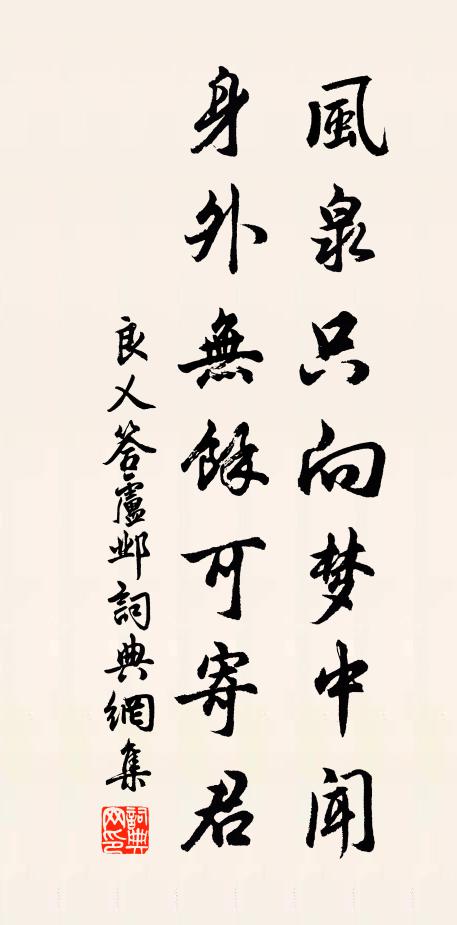 風泉只向梦中闻
身外無餘可寄君
良乂答盧邺詞典網集
詞典
网印